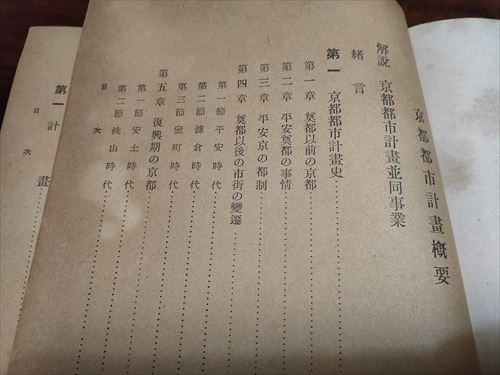 京都都市計畫槪要
解說 京都都市計畫並同事業
緖言
第一 京都都市計畫史
第一章 奠都以前の京都
第二章 平安奠都の事情
第三章 平安京の都制
第四章 奠都以後の市街の變遷
第一節 平安時代
第二節 鎌倉時代
第三節 室町時代
第五章 復興期の京都
第一節 安土時代
第二節 桃山時代
目次
第一 計畫
目次